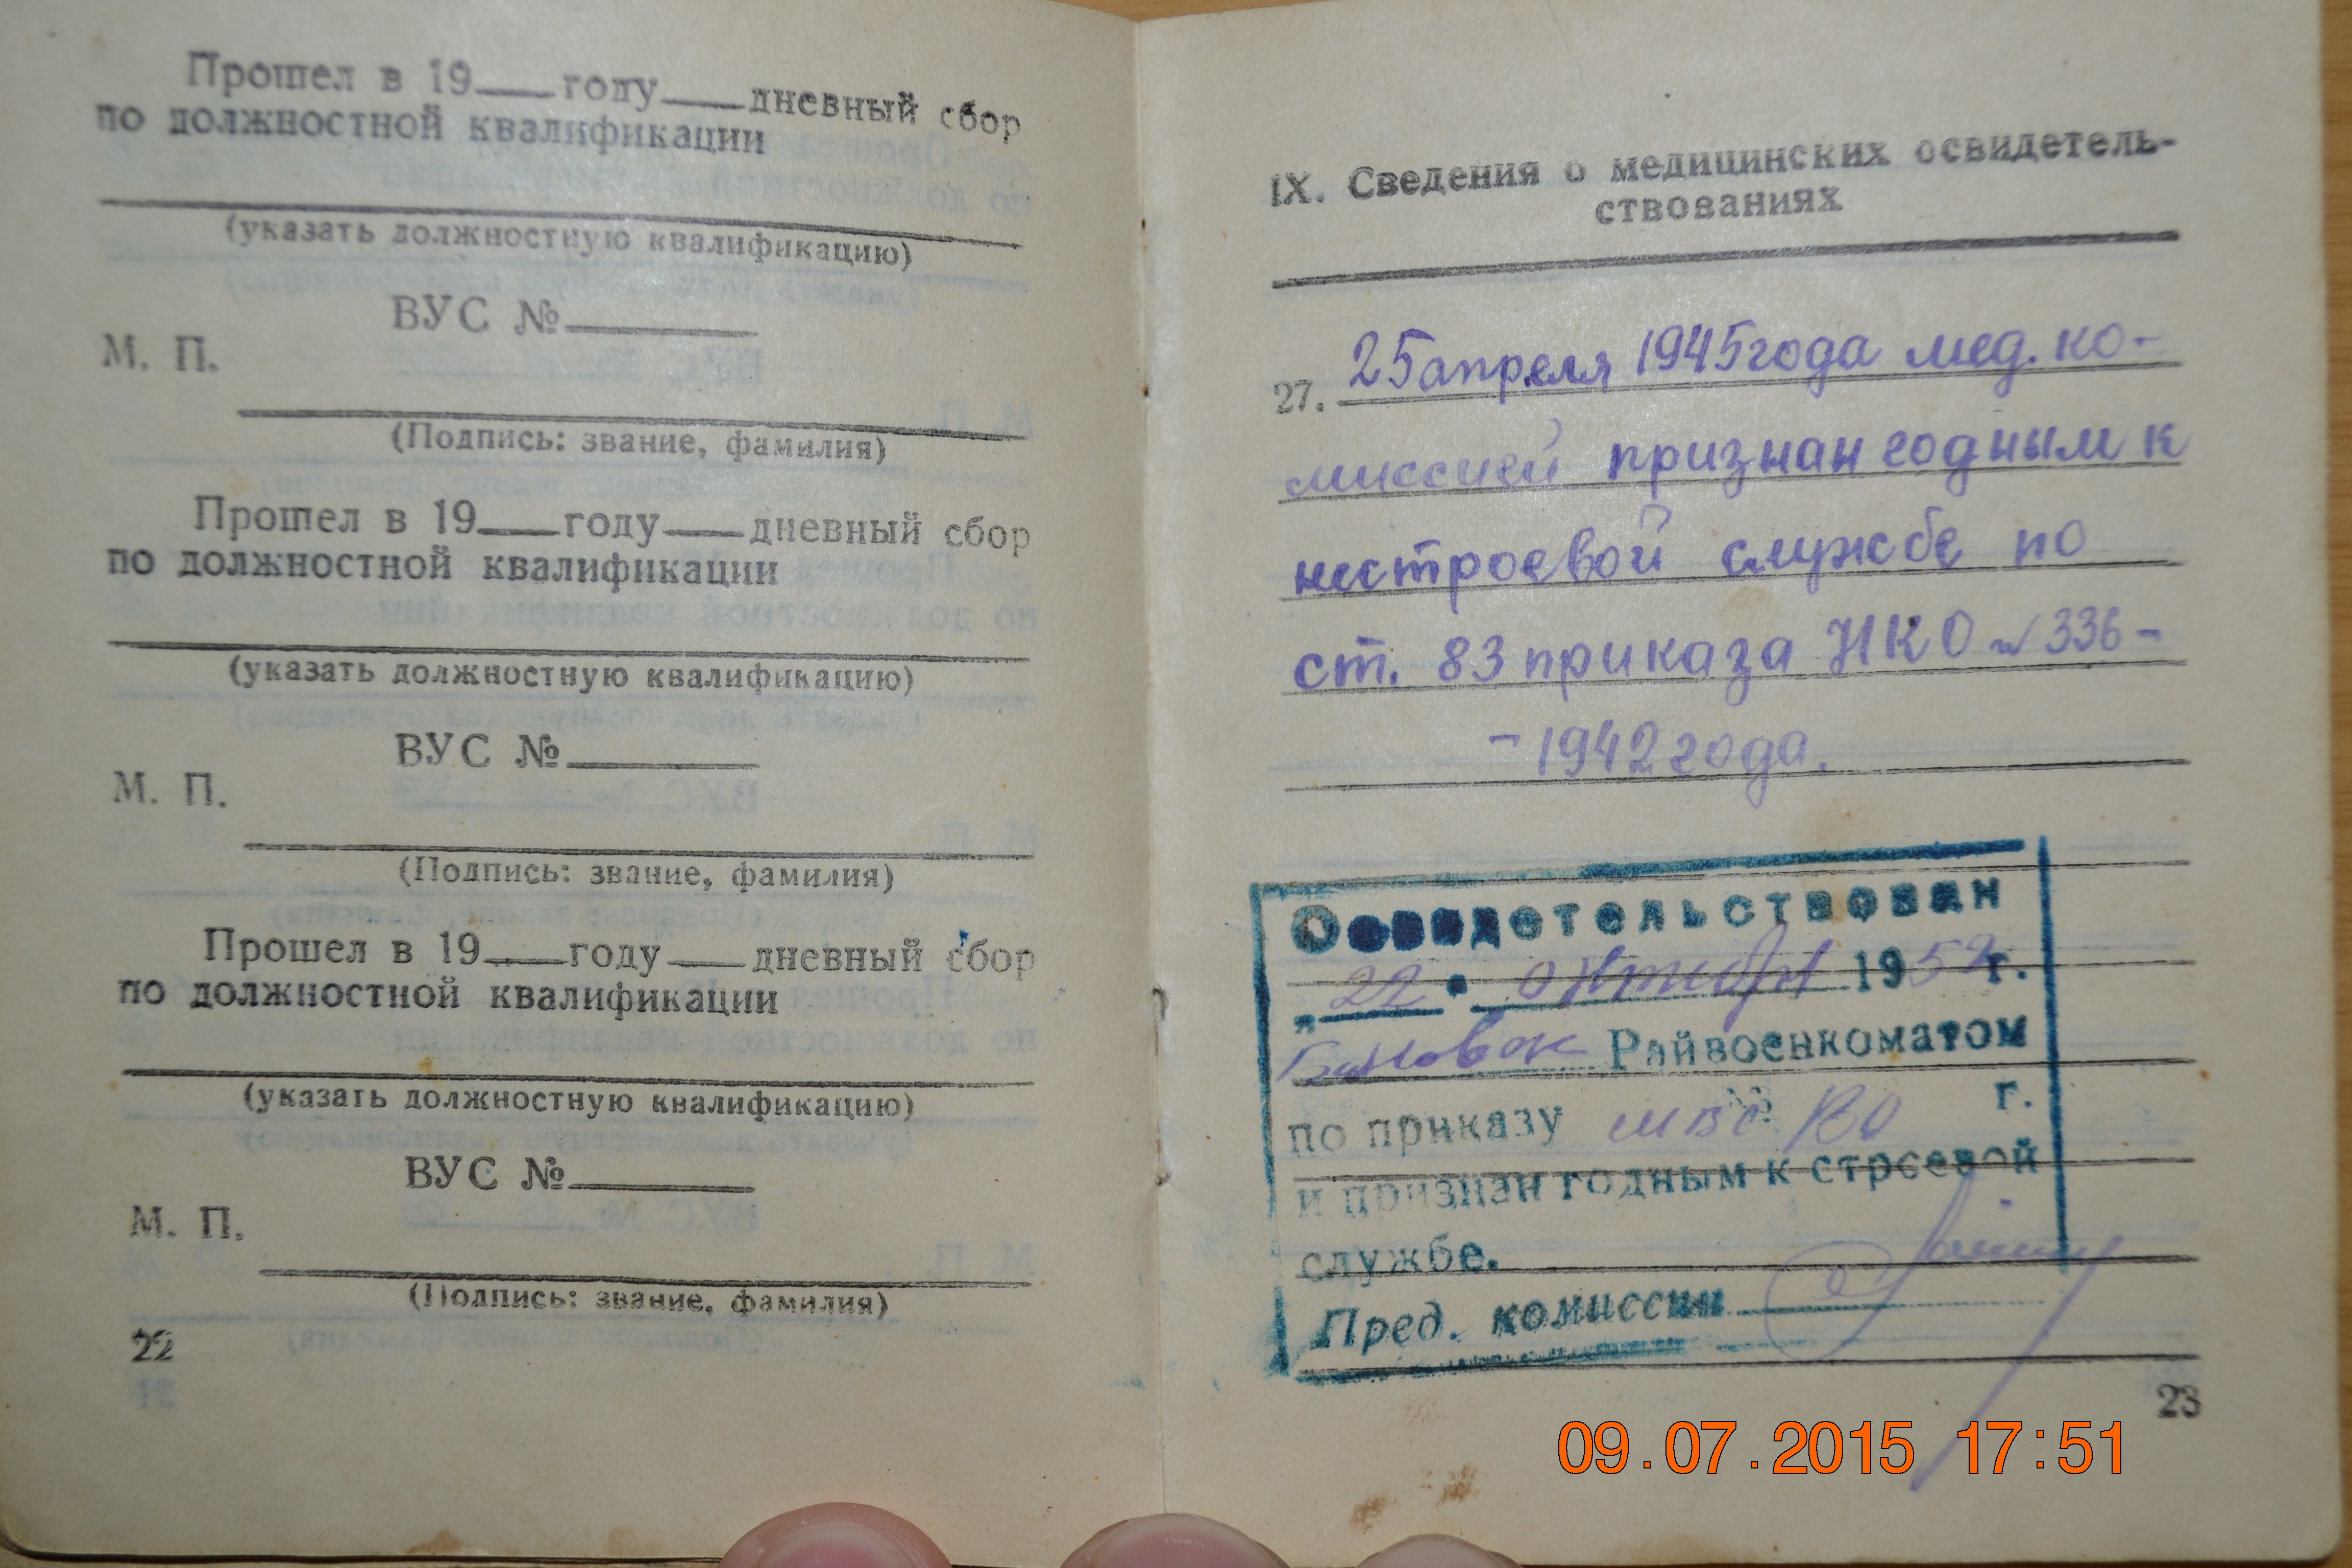 Прошел в 19___году___дневный сбор
по должностной квалификации
(указать должностную квалификацию)
ВУС №______
М. П.
(Подпись: звание, фамилия)
Прошел в 19___году___дневный сбор
по должностной квалификации
(указать должностную квалификацию)
ВУС №______
М. П.
(Подпись: звание, фамилия)
Прошел в 19___году___дневный сбор
по должностной квалификации
(указать должностную квалификацию)
ВУС №______
М. П.
(Подпись: звание, фамилия)
22
IX. Сведения о медицинских освидетель-
ствованиях
27. 25 апреля 1945 года мед. ко-
миссией признан годным к
нестроевой службе по
ст. 83 приказа НКО № 336-
-1942 года.
Освидетельствован
„22" октября 1952 г.
Райвоенкоматом
по приказу г.
и признан годным к строевой
службе.
Пред. комиссии
23
09.07.2015 17:51